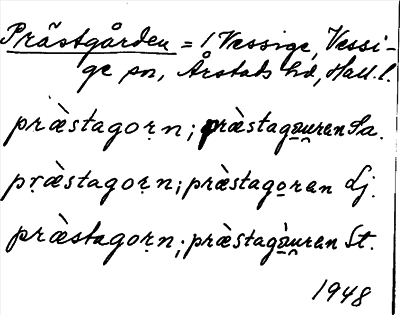 Prästgården = 1 Vessige, Vessi-
ge sn, Årstads hd, Hall. l.
præ̀stagoṛn; præ̀stago̠u̯ran Sa.
pṛæ̀stagoṛn; præ̀stago̠ran Lj.
præ̀stagoṛn; præ̀stagò̠u̯ran St.
1948